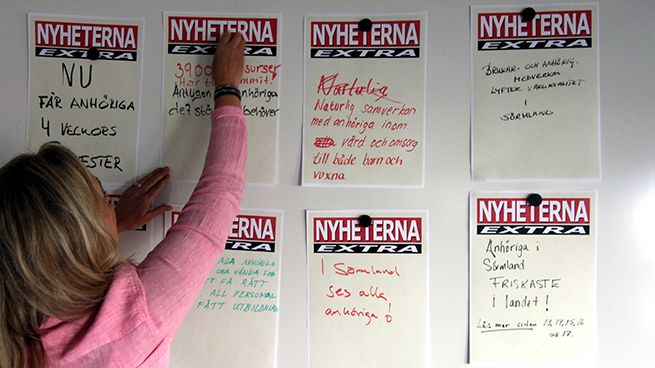 NYHETERNA
EXTRA
NU
FÅR ANHÖRIGA
4 VECKORS
NYHETERNA
EXTRA
3900
Har
anhöriga
det stöd behöver
NYHETERNA
EXTRA
Naturlig
Naturlig samverkan
med anhöriga inom
vård och omsorg
till både barn och
vuxna
NYHETERNA
EXTRA
BRUKAR- OCH ANHÖRIG-
MEDVERKAN
LYFTER VÅRDKVALITET
I
SÖRMLAND
NYHETERNA
EXTRA
ALLA ANHÖRIGA
VÄNDA
FÅ RÄTT
ALL PERSONAL
FÅTT UTBILDNING
NYHETERNA
EXTRA
I Sörmland
ses alla
anhöriga!
NYHETERNA
EXTRA
Anhöriga i
Sörmland
FRISKASTE
i landet!
Läs mer sidan 13, 14, 15, 16
och 17.